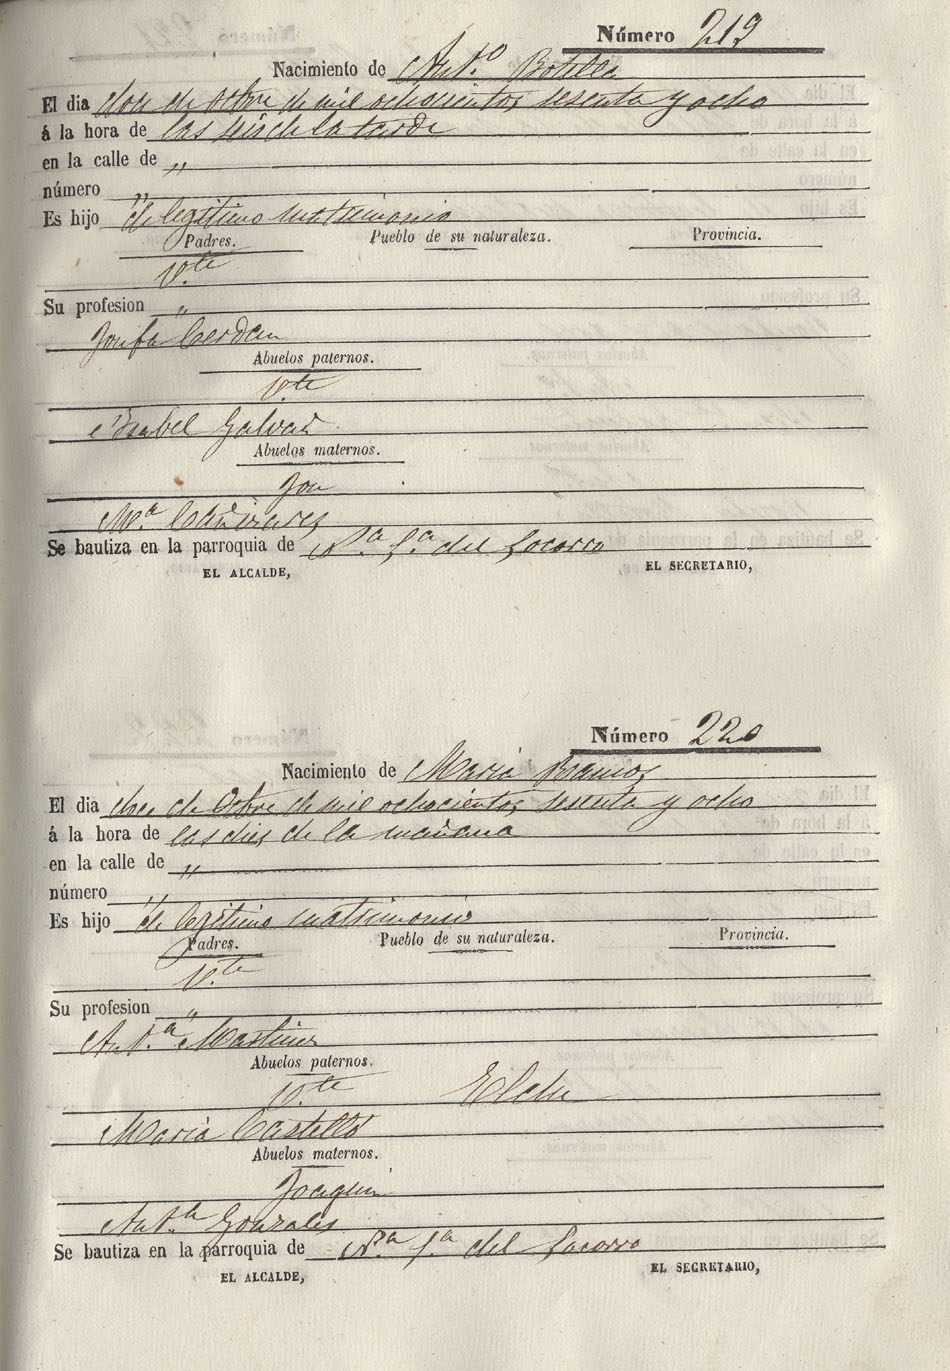 Número 219
Nacimiento de Ant.º Botella
El dia doce de Octbre de mil ochocientos sesenta y ocho
á la hora de las seis de la tarde
en la calle de "
número "
Es hijo de legitimo matrimonio
Padres. Pueblo de su naturaleza. Provincia.
V.te
Su profesion "
Josefa Cerdan
Abuelos paternos.
V.te
Isabel Galvañ
Abuelos maternos.
José
M.ª Cañizares
Se bautiza en la parroquia de N.ª S.ª del Socorro
EL ALCALDE, EL SECRETARIO,
Número 220
Nacimiento de Maria Ramos
El dia doce de Octbre de mil ochocientos sesenta y ocho
á la hora de las dies de la mañana
en la calle de "
número "
Es hijo de legitimo matrimonio
Padres. Pueblo de su naturaleza. Provincia.
V.te
Su profesion "
Ant.ª Martines
Abuelos paternos.
V.te Elche
Maria Castelló
Abuelos maternos.
Joaquin
Ant.ª Gonzales
Se bautiza en la parroquia de N.ª S.ª del Socorro
EL ALCALDE, EL SECRETARIO,